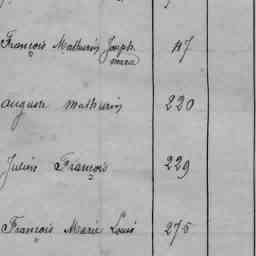 François Mathurin Joseph 47
marie
auguste mathurin 220
Julien François 229
François Marie Louis 275